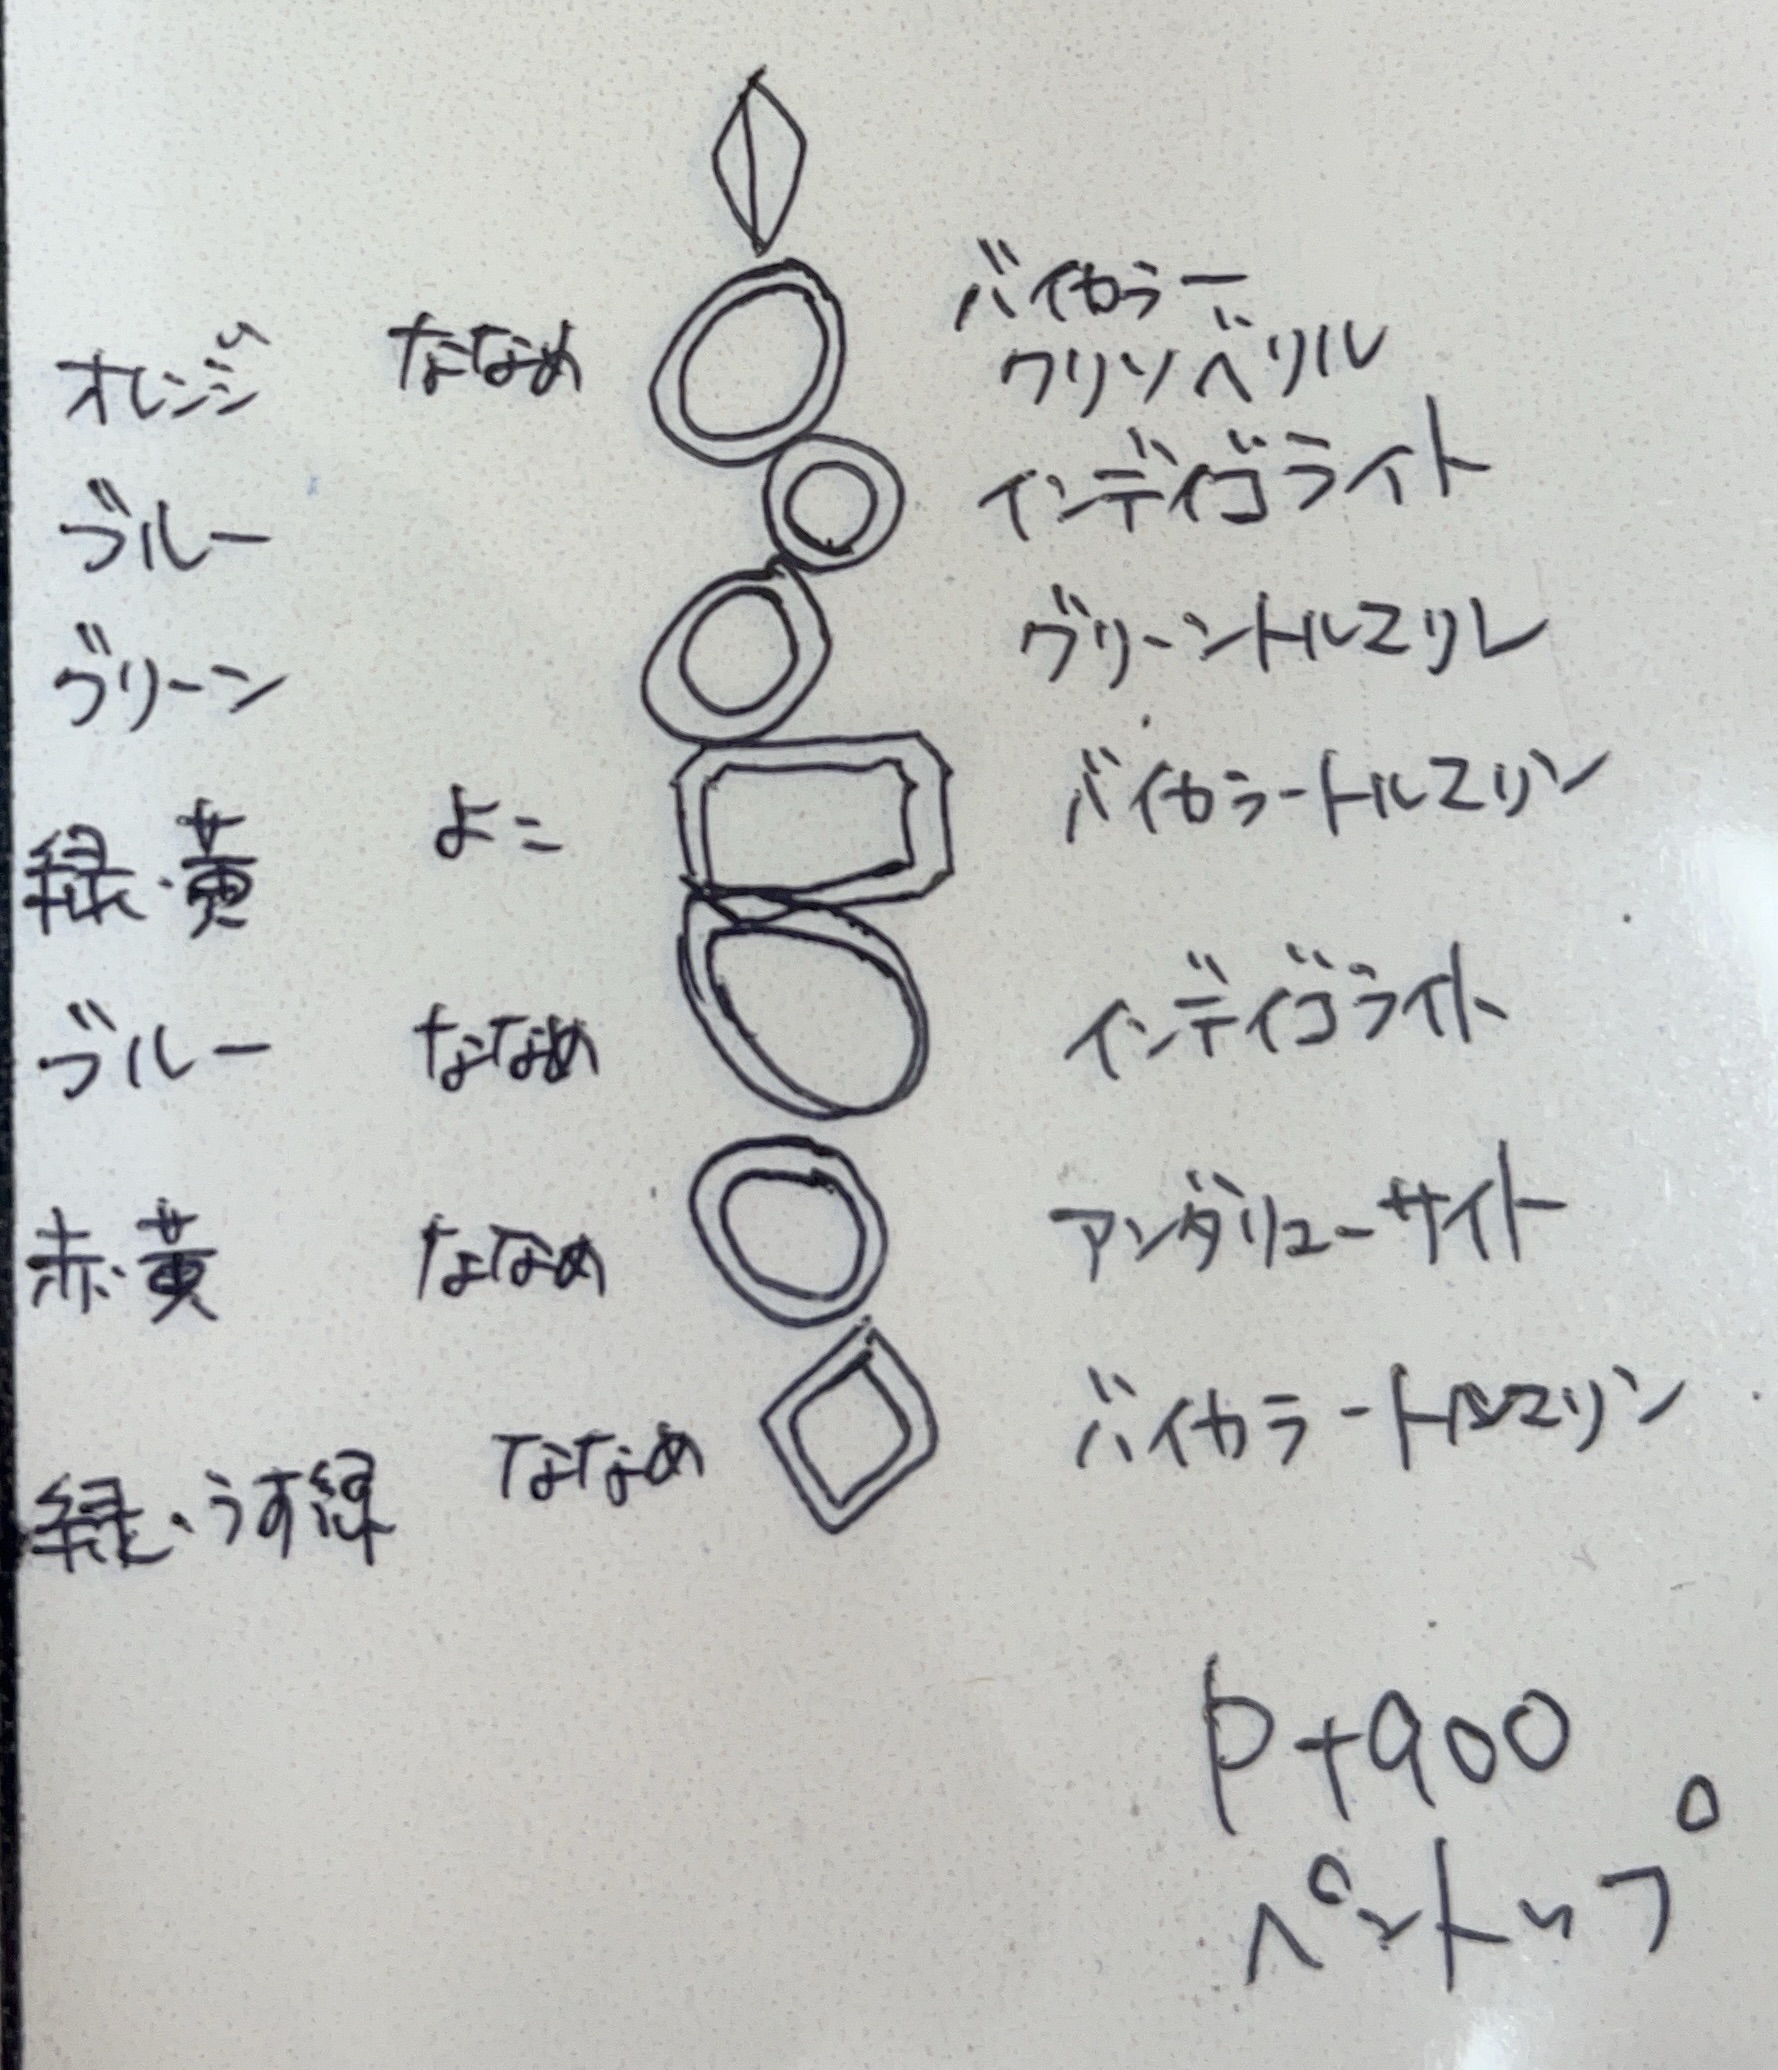 バイカラー
オレンジ ななめ クリソベリル
ブルー インディゴライト
グリーン グリーントルマリン
緑・黄 よこ バイカラートルマリン
ブルー ななめ インディゴライト
赤・黄 ななめ アンダリューサイト
緑・うす緑 ななめ バイカラートルマリン
Pt900
ペントップ